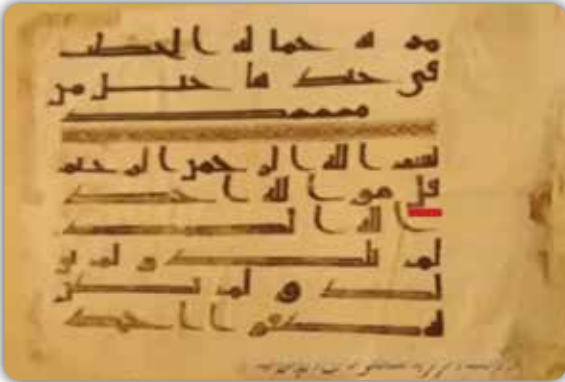 مر ته حما له الحطب
في جيد ها حبل من
مسد
بسم الله الرحمن الرحيم
قل هو الله احد
الله الصمد
لم يلد و لم يو
لد و لم يكن
له كفوا احد